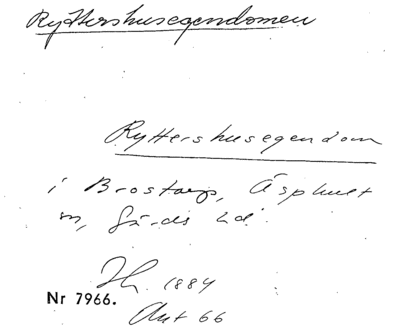 Ryttershusegendomen
Ryttershusegendom
i Brostarp, Äsphult
m, Gärds hd.
1884
Nr 7966.
Ant 66